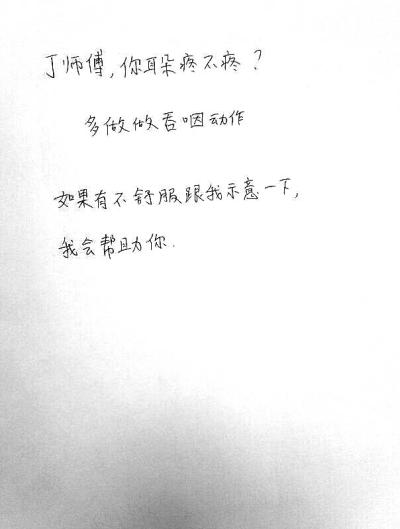 丁师傅,你耳朵疼不疼?
多做做吞咽动作
如果有不舒服跟我示意一下,
我会帮助你.